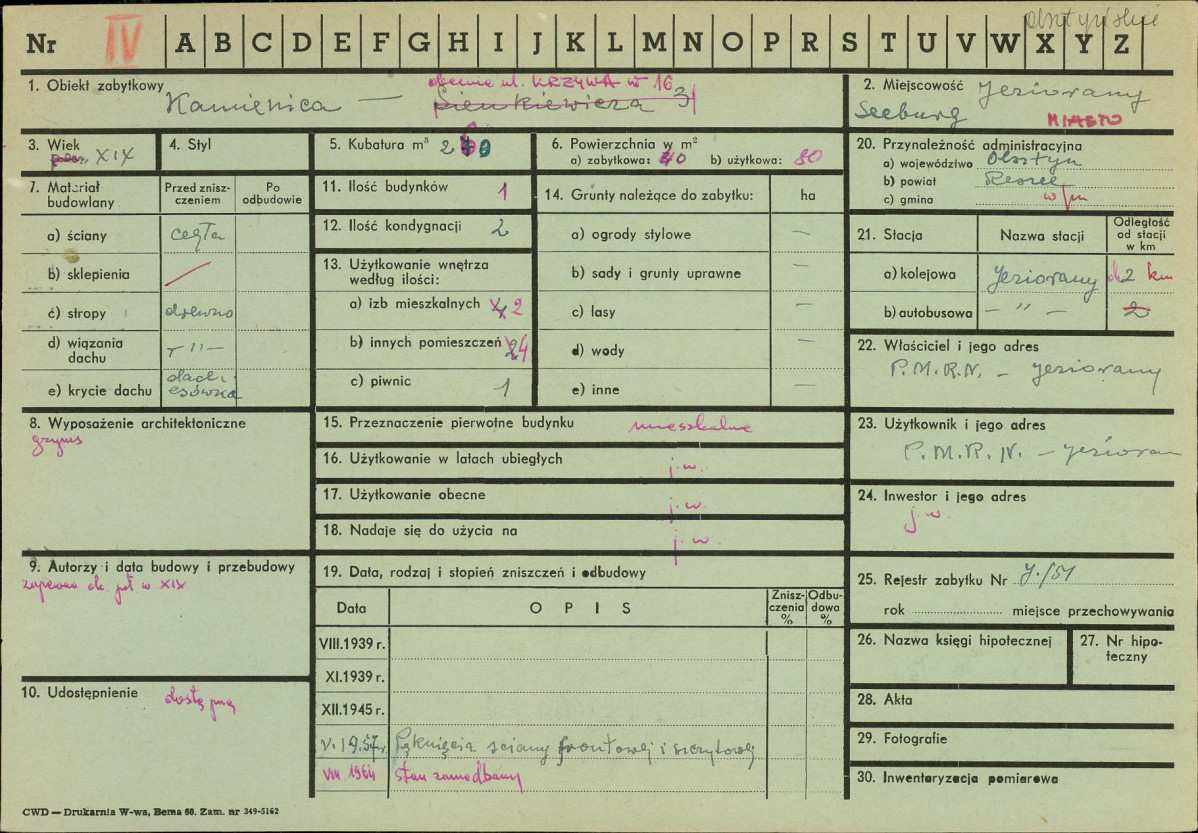 olsztyńskie
Nr IV A B C D E F G H I J K L M N O P R S T U V W X Y Z
1. Obiekt zabytkowy
obecnie ul. KRZYWA nr 16
Kamienica — Sienkiewicza 3
2. Miejscowość Jeziorany
Seeburg MIASTO
3. Wiek
XIX
4. Styl
5. Kubatura m³
6. Powierzchnia w m²
a) zabytkowa: 40 b) użytkowa: 80
7. Materiał budowlany
Przed zniszczeniem
Po odbudowie
a) ściany cegła
b) sklepienia
c) stropy drewno
d) wiązania dachu — " —
e) krycie dachu dachówka
8. Wyposażenie architektoniczne
gzyms
9. Autorzy i data budowy i przebudowy
zapewne ok. poł w XIX
10. Udostępnienie dostępny
11. Ilość budynków 1
12. Ilość kondygnacji 2
13. Użytkowanie wnętrza według ilości:
a) izb mieszkalnych 2
b) innych pomieszczeń 4
c) piwnic 1
14. Grunty należące do zabytku: ha
a) ogrody stylowe —
b) sady i grunty uprawne —
c) lasy —
d) wody —
e) inne —
15. Przeznaczenie pierwotne budynku mieszkalne
16. Użytkowanie w latach ubiegłych j.w.
17. Użytkowanie obecne j.w.
18. Nadaje się do użycia na j.w.
19. Data, rodzaj i stopień zniszczeń i odbudowy
Data OPIS Zniszczenia % Odbudowa %
VIII.1939 r.
XI.1939 r.
XII.1945 r.
V.1957 r. Pęknięcia ściany frontowej i szczytowej
VIII 1964 stan zaniedbany
20. Przynależność administracyjna
a) województwo Olsztyn
b) powiat Reszel
c) gmina w/m
21. Stacja Nazwa stacji Odległość od stacji w km
a) kolejowa Jeziorany ok 2 km
b) autobusowa — " — 2
22. Właściciel i jego adres
P.M.R.N. — Jeziorany
23. Użytkownik i jego adres
P.M.R.N. — Jezioran
24. Inwestor i jego adres
j.w.
25. Rejestr zabytku Nr J./51
rok miejsce przechowywania
26. Nazwa księgi hipotecznej
27. Nr hipoteczny
28. Akta
29. Fotografie
30. Inwentaryzacja pomiarowa
CWD — Drukarnia W-wa, Bema 60. Zam. nr 349-5162